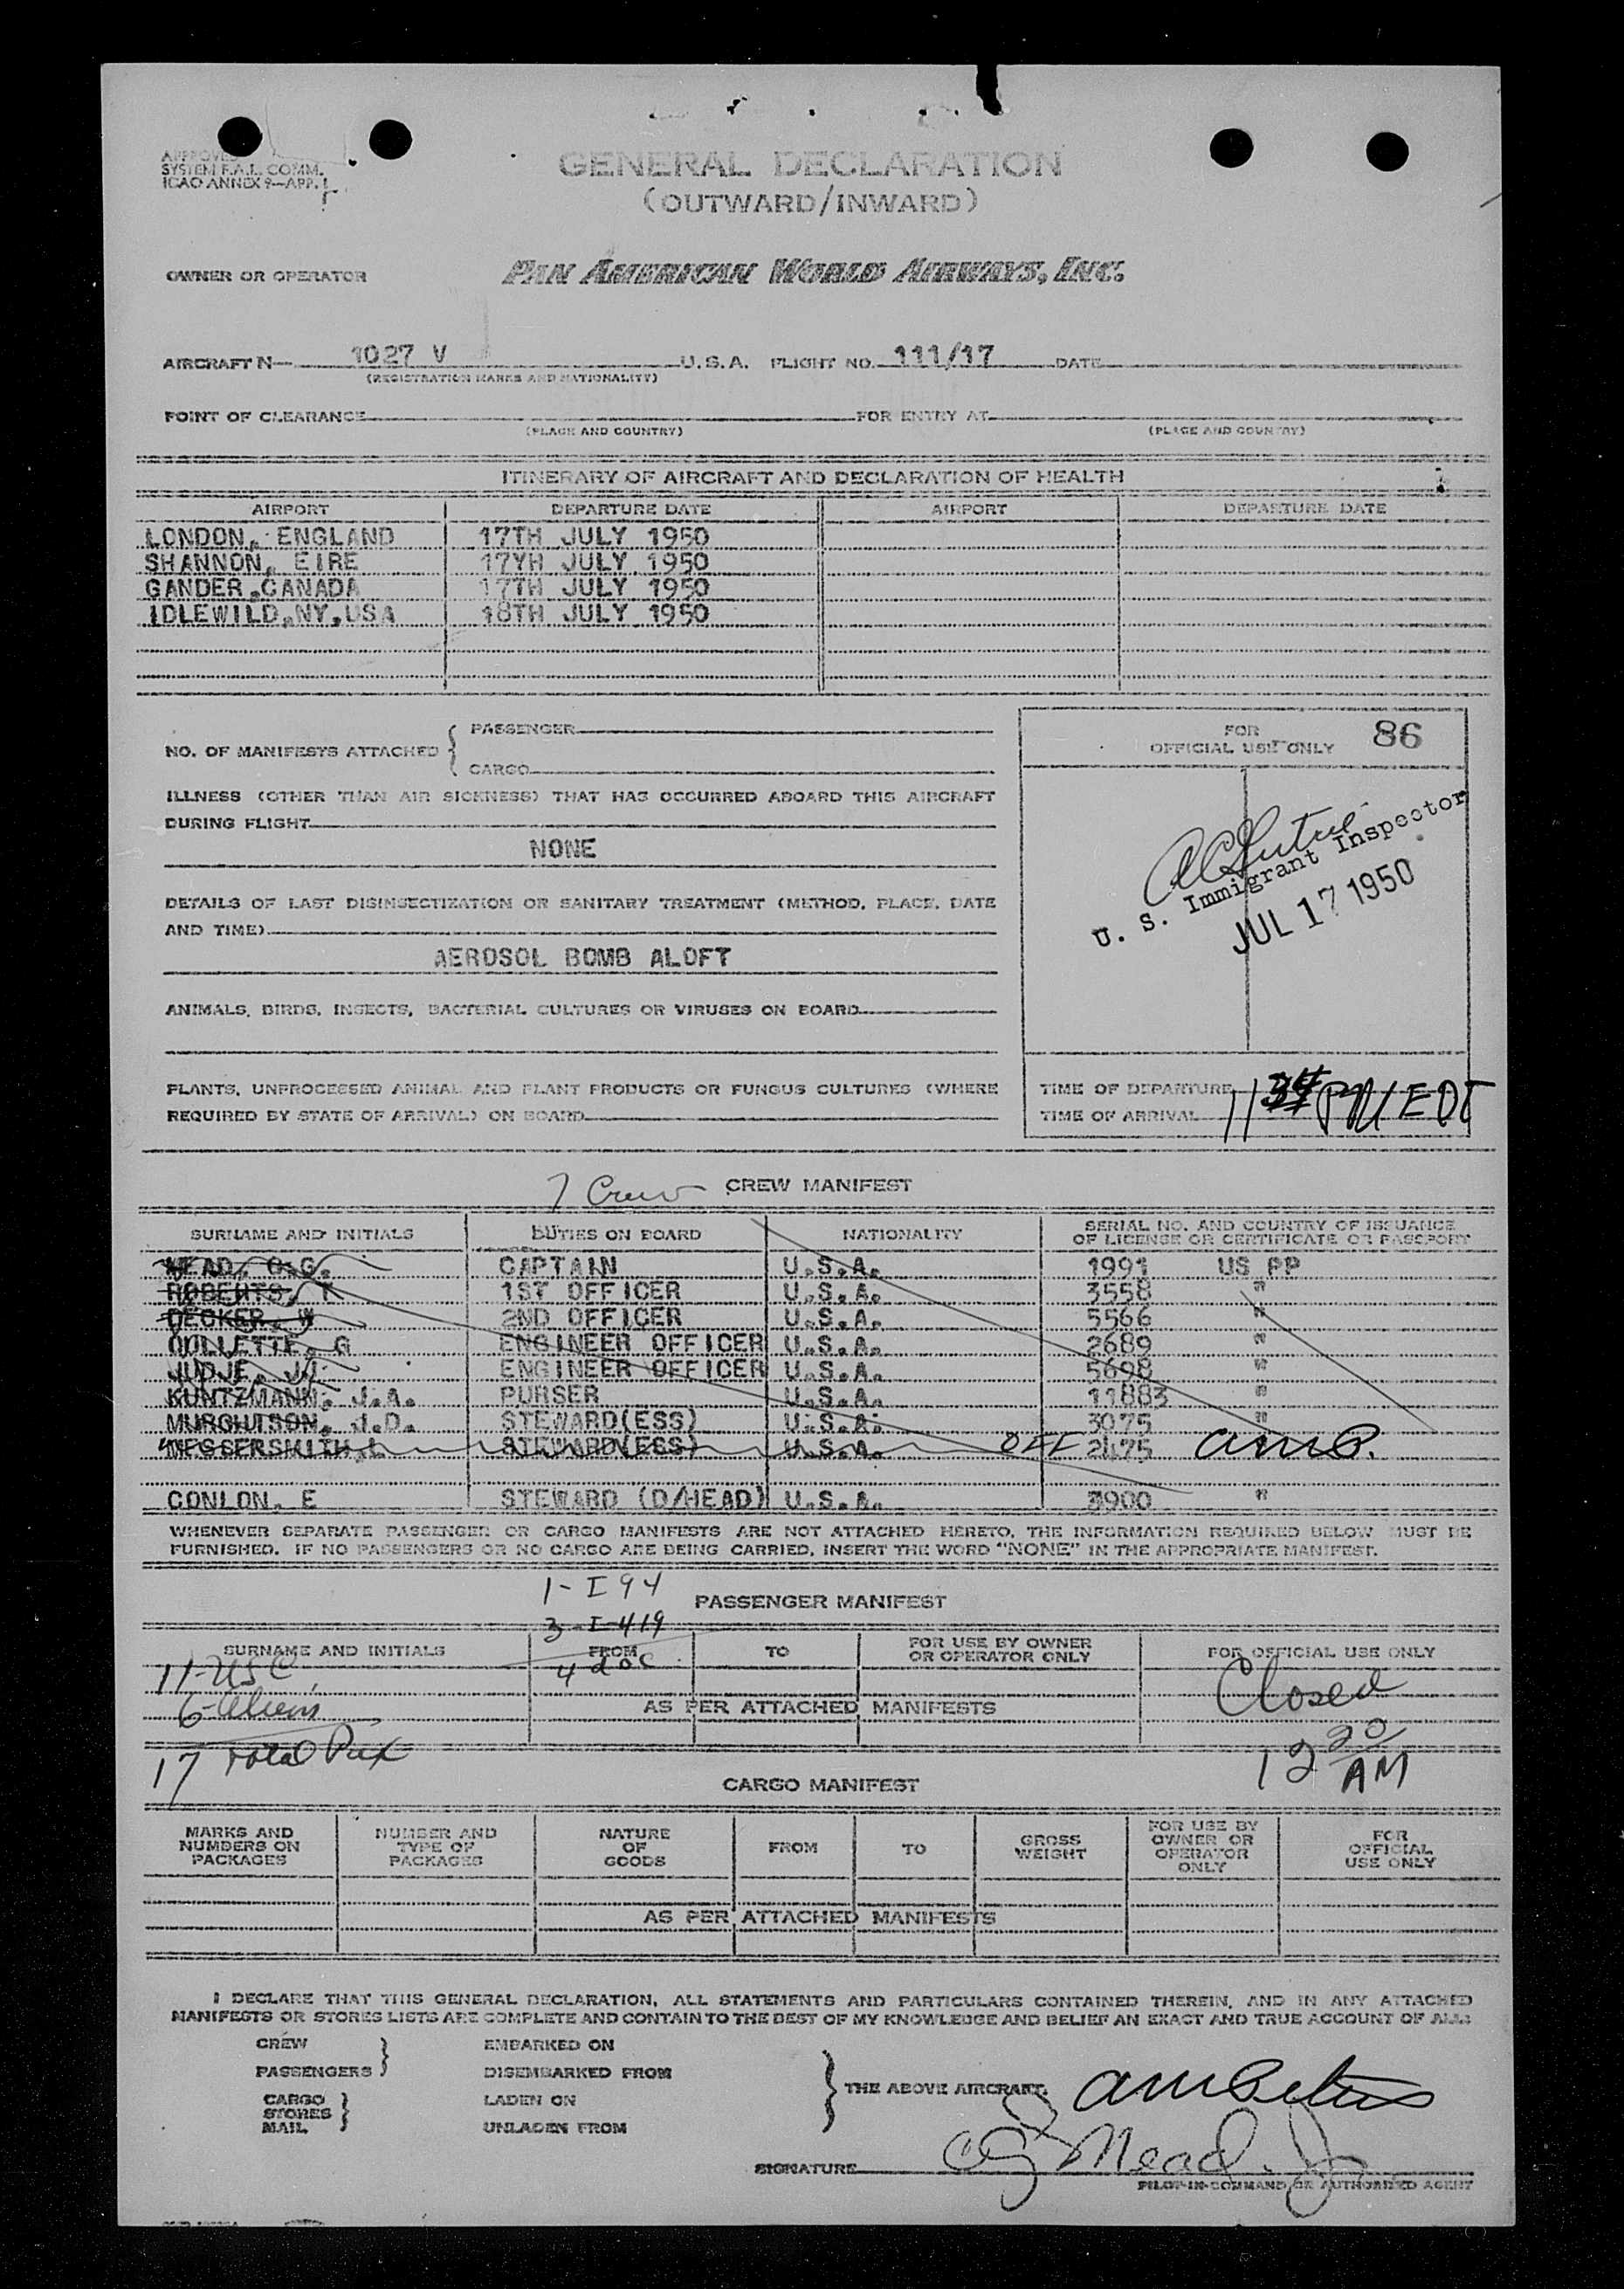 APPROVED
SYSTEM F.A.L. COMM.
ICAO ANNEX 9—APP. 1
GENERAL DECLARATION
(OUTWARD/INWARD)
OWNER OR OPERATOR PAN AMERICAN WORLD AIRWAYS, INC.
AIRCRAFT N— 1027 V U.S.A. FLIGHT NO. 111/17 DATE
(REGISTRATION MARKS AND NATIONALITY)
POINT OF CLEARANCE FOR ENTRY AT
(PLACE AND COUNTRY) (PLACE AND COUNTRY)
ITINERARY OF AIRCRAFT AND DECLARATION OF HEALTH
AIRPORT DEPARTURE DATE AIRPORT DEPARTURE DATE
LONDON, ENGLAND 17TH JULY 1950
SHANNON, EIRE 17YH JULY 1950
GANDER,CANADA 17TH JULY 1950
IDLEWILD,NY,USA 18TH JULY 1950
NO. OF MANIFESTS ATTACHED { PASSENGER
CARGO
FOR
OFFICIAL USE ONLY 86
ILLNESS (OTHER THAN AIR SICKNESS) THAT HAS OCCURRED ABOARD THIS AIRCRAFT
DURING FLIGHT
NONE
U. S. Immigrant Inspector
JUL 17 1950
DETAILS OF LAST DISINSECTIZATION OR SANITARY TREATMENT (METHOD, PLACE, DATE
AND TIME)
AEROSOL BOMB ALOFT
ANIMALS, BIRDS, INSECTS, BACTERIAL CULTURES OR VIRUSES ON BOARD
PLANTS, UNPROCESSED ANIMAL AND PLANT PRODUCTS OR FUNGUS CULTURES (WHERE
REQUIRED BY STATE OF ARRIVAL) ON BOARD
TIME OF DEPARTURE
TIME OF ARRIVAL 11 34 PM EDT
7 Crew CREW MANIFEST
SURNAME AND INITIALS DUTIES ON BOARD NATIONALITY SERIAL NO. AND COUNTRY OF ISSUANCE
OF LICENSE OR CERTIFICATE OR PASSPORT
MEAD, C.G. CAPTAIN U.S.A. 1991 US PP
ROBERTS, T 1ST OFFICER U.S.A. 3558 "
DECKER, W 2ND OFFICER U.S.A. 5566 "
OULLETTE, G ENGINEER OFFICER U.S.A. 2689 "
JUDJE, JJ ENGINEER OFFICER U.S.A. 5698 "
KUNTZMANN, J.A. PURSER U.S.A. 11883 "
MURCHTSON, J.D. STEWARD(ESS) U.S.A. 3075 "
MESSERSMITH,L STEWARD(ESS) U.S.A. OFF 2475 amP.
CONLON, E STEWARD (D/HEAD) U.S.A. 3900 "
WHENEVER SEPARATE PASSENGER OR CARGO MANIFESTS ARE NOT ATTACHED HERETO, THE INFORMATION REQUIRED BELOW MUST BE
FURNISHED. IF NO PASSENGERS OR NO CARGO ARE BEING CARRIED, INSERT THE WORD "NONE" IN THE APPROPRIATE MANIFEST.
1- I 94
PASSENGER MANIFEST
3-I-419
SURNAME AND INITIALS FROM TO FOR USE BY OWNER
OR OPERATOR ONLY FOR OFFICIAL USE ONLY
11-USC 4 doc Closed
6-Aliens AS PER ATTACHED MANIFESTS
17 Total Pax 12 20 AM
CARGO MANIFEST
MARKS AND
NUMBERS ON
PACKAGES
NUMBER AND
TYPE OF
PACKAGES
NATURE
OF
GOODS
FROM
TO
GROSS
WEIGHT
FOR USE BY
OWNER OR
OPERATOR
ONLY
FOR
OFFICIAL
USE ONLY
AS PER ATTACHED MANIFESTS
I DECLARE THAT THIS GENERAL DECLARATION, ALL STATEMENTS AND PARTICULARS CONTAINED THEREIN, AND IN ANY ATTACHED
MANIFESTS OR STORES LISTS ARE COMPLETE AND CONTAIN TO THE BEST OF MY KNOWLEDGE AND BELIEF AN EXACT AND TRUE ACCOUNT OF ALL:
CREW EMBARKED ON
PASSENGERS } DISEMBARKED FROM
CARGO LADEN ON
STORES }
MAIL UNLADEN FROM
} THE ABOVE AIRCRAFT.
SIGNATURE CG Mead. Jr
PILOT-IN-COMMAND OR AUTHORIZED AGENT